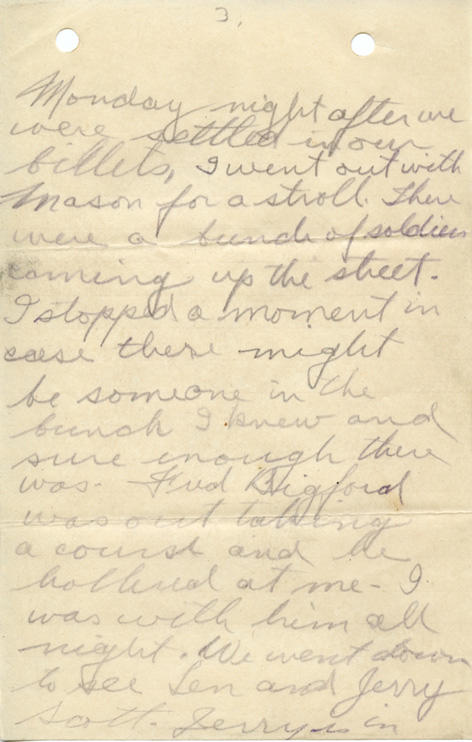 3.
Monday night after we
were settled in our
billets, I went out with
Mason for a stroll. There
were a bunch of soldiers
coming up the street.
I stopped a moment in
case there might
be someone in the
bunch I knew and
sure enough there
was - Fred Bigford
was out taking
a course and he
hollered at me - I
was with him all
night. We went down
to see Len and Jerry
Scott - Jerry is in